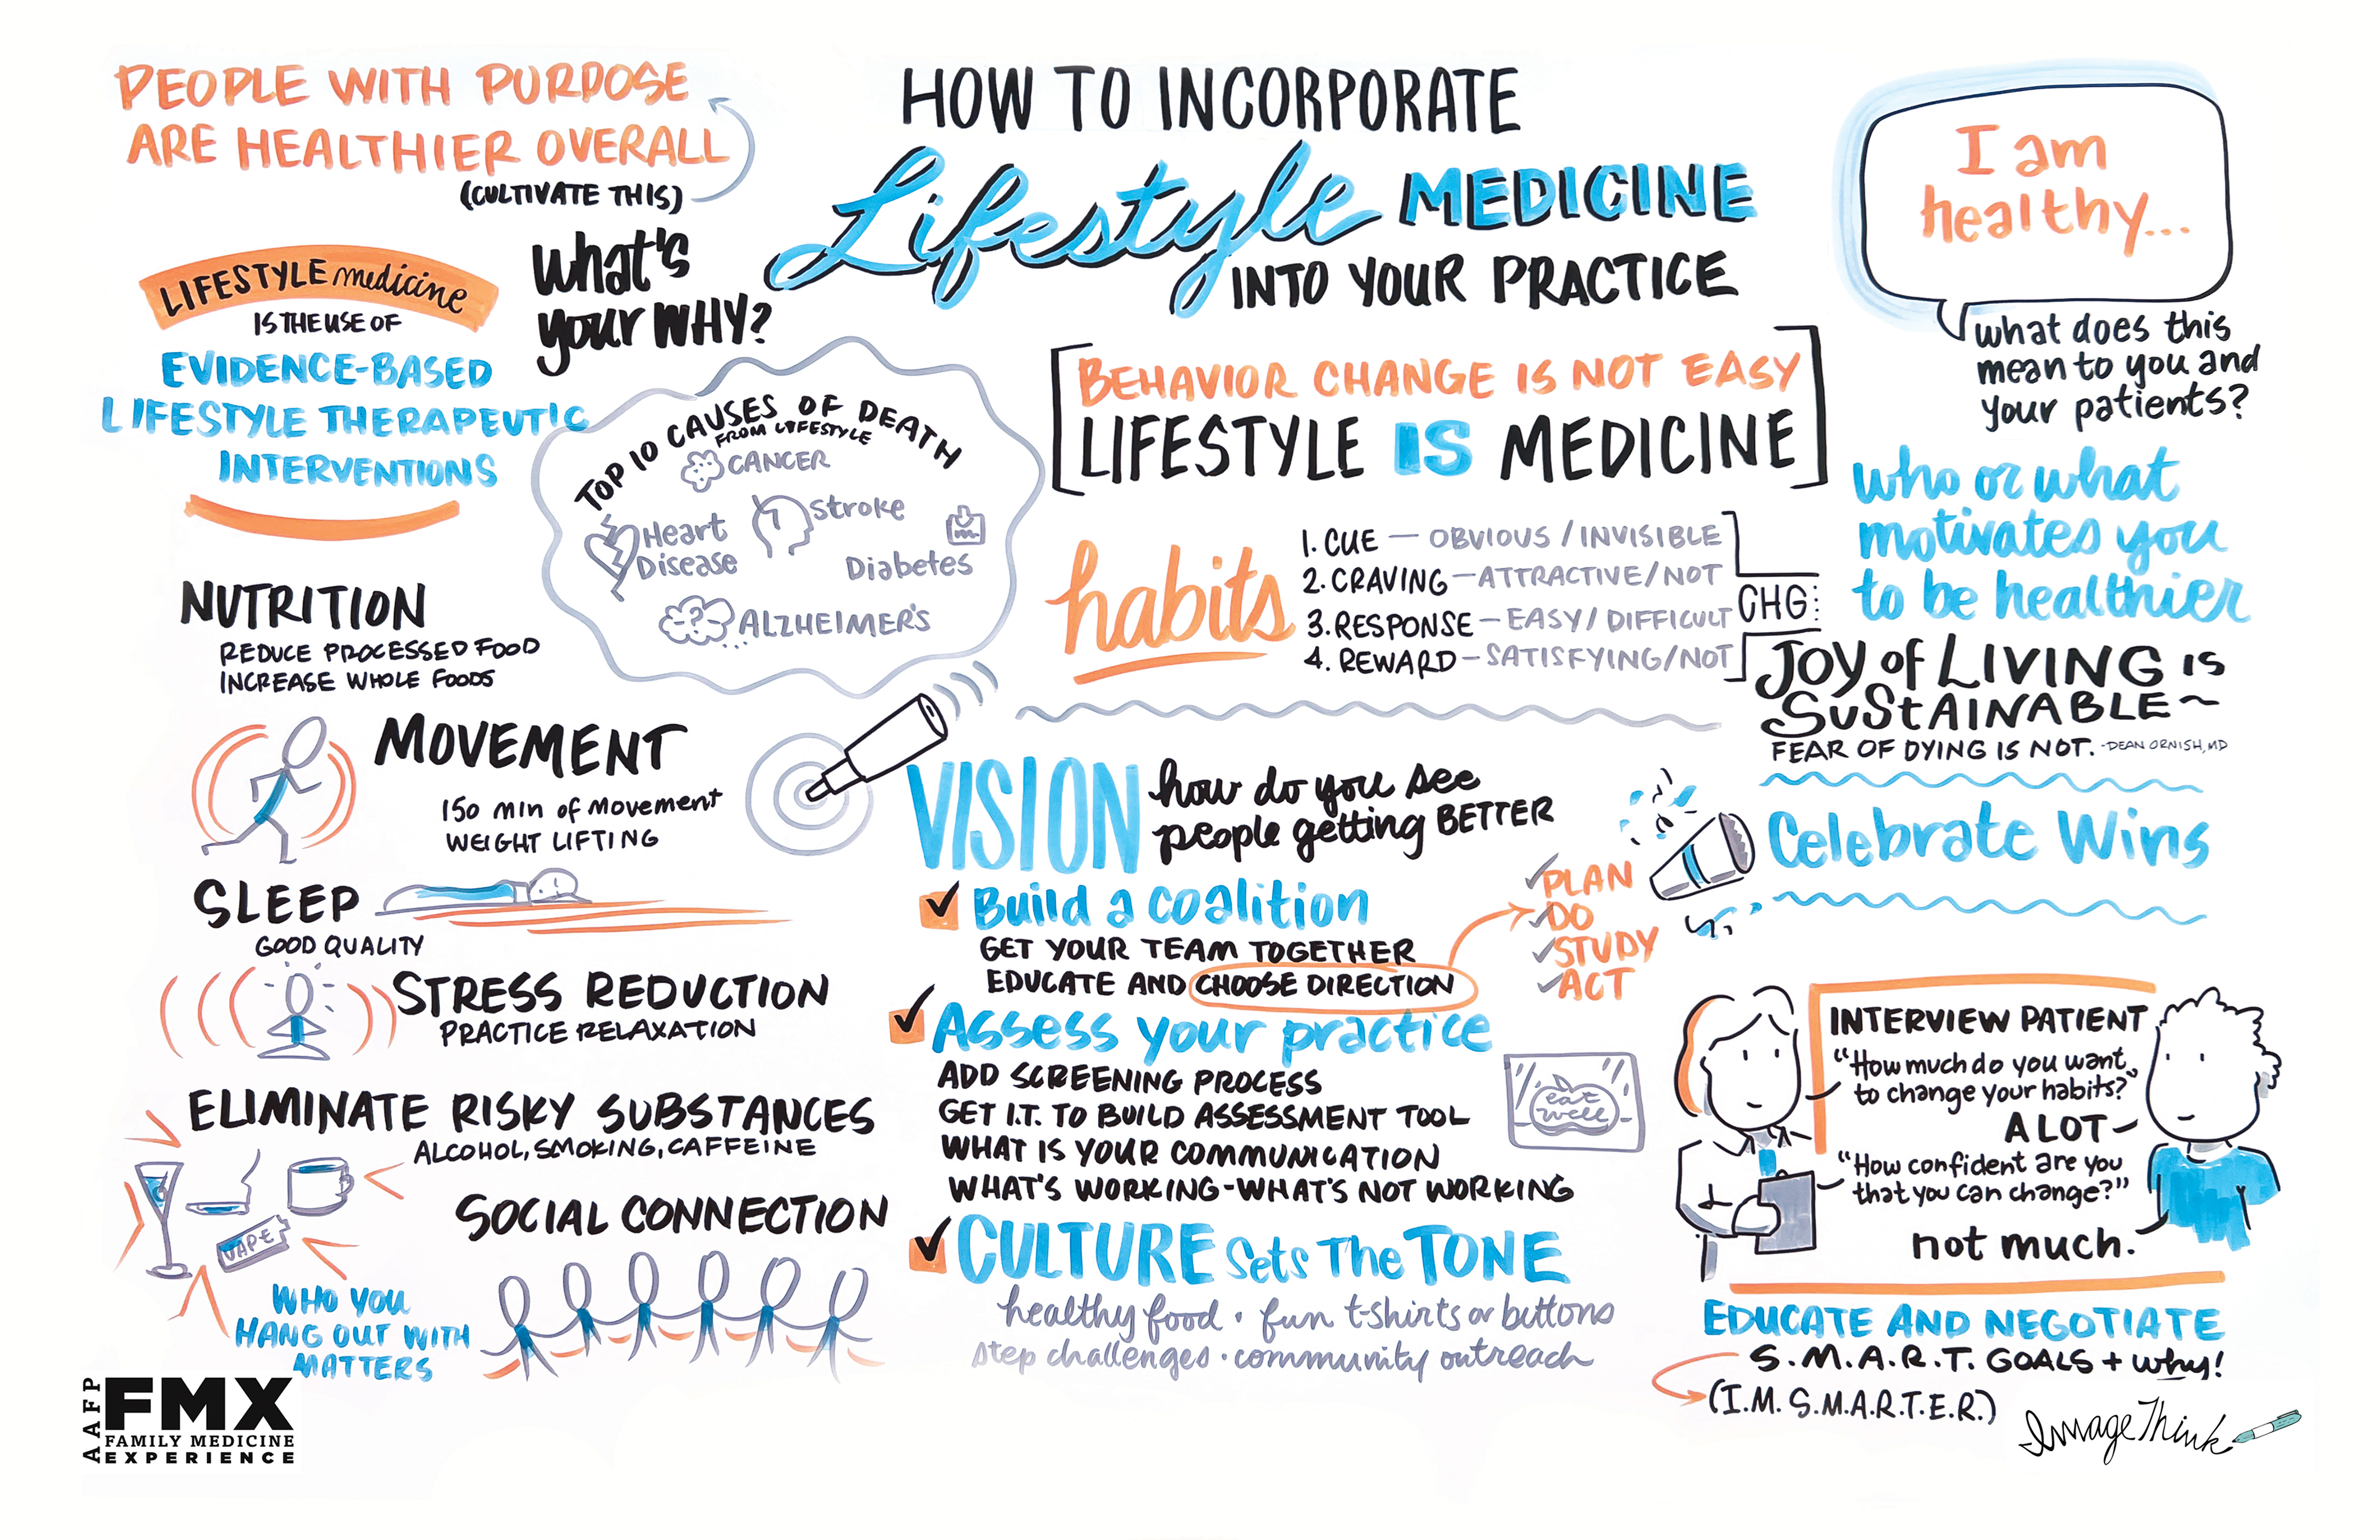 PEOPLE WITH PURPOSE
ARE HEALTHIER OVERALL
(CULTIVATE THIS)
HOW TO INCORPORATE
Lifestyle MEDICINE
INTO YOUR PRACTICE
I am
healthy...
what does this
mean to you and
your patients?
LIFESTYLE medicine
IS THE USE OF
EVIDENCE-BASED
LIFESTYLE THERAPEUTIC
INTERVENTIONS
What's
your WHY?
TOP 10 CAUSES OF DEATH
FROM LIFESTYLE
CANCER
Heart
Disease
Stroke
Diabetes
ALZHEIMER'S
?
BEHAVIOR CHANGE IS NOT EASY
LIFESTYLE IS MEDICINE
habits
1. CUE — OBVIOUS / INVISIBLE
2. CRAVING — ATTRACTIVE/NOT
3. RESPONSE — EASY/DIFFICULT
4. REWARD — SATISFYING/NOT
CHG:
who or what
motivates you
to be healthier
JOY of LIVING IS
SUStAINABLE ~
FEAR OF DYING IS NOT. -DEAN ORNISH, MD
Celebrate Wins
NUTRITION
REDUCE PROCESSED FOOD
INCREASE WHOLE FOODS
MOVEMENT
150 min of movement
WEIGHT LIFTING
SLEEP
GOOD QUALITY
STRESS REDUCTION
PRACTICE RELAXATION
ELIMINATE RISKY SUBSTANCES
ALCOHOL, SMOKING, CAFFEINE
VAPE
SOCIAL CONNECTION
WHO YOU
HANG OUT WITH
MATTERS
VISION how do you see
people getting BETTER
Build a coalition
GET YOUR TEAM TOGETHER
EDUCATE AND CHOOSE DIRECTION
PLAN
DO
STUDY
ACT
Assess your practice
ADD SCREENING PROCESS
GET I.T. TO BUILD ASSESSMENT TOOL
WHAT IS YOUR COMMUNICATION
WHAT'S WORKING - WHAT'S NOT WORKING
eat
well
CULTURE Sets The TONE
healthy food · fun t-shirts or buttons
step challenges · community outreach
INTERVIEW PATIENT
"How much do you want
to change your habits?"
A LOT
"How confident are you
that you can change?"
not much.
EDUCATE AND NEGOTIATE
S.M.A.R.T. GOALS + why!
(I.M. S.M.A.R.T.E.R.)
AAFP
FMX
FAMILY MEDICINE
EXPERIENCE
ImageThink